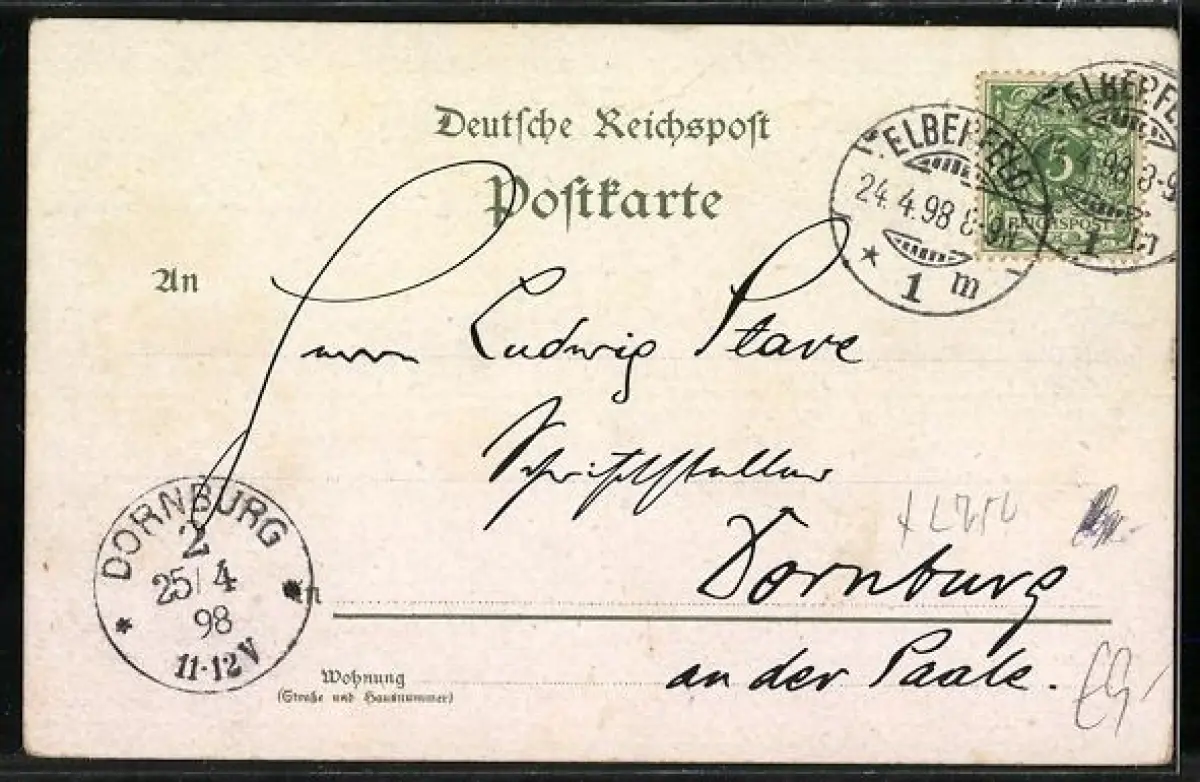 Deutsche Reichspost
Postkarte
ELBERFELD
24.4.98 8-9N
1 m
5
REICHSPOST
ELBERFELD
4.98 8-9
1 m
An
Herrn Ludwig Stave
Schriftsteller
Dornburg
in
an der Saale.
DORNBURG
2
25/4
98
11-12V
Wohnung
(Straße und Hausnummer)